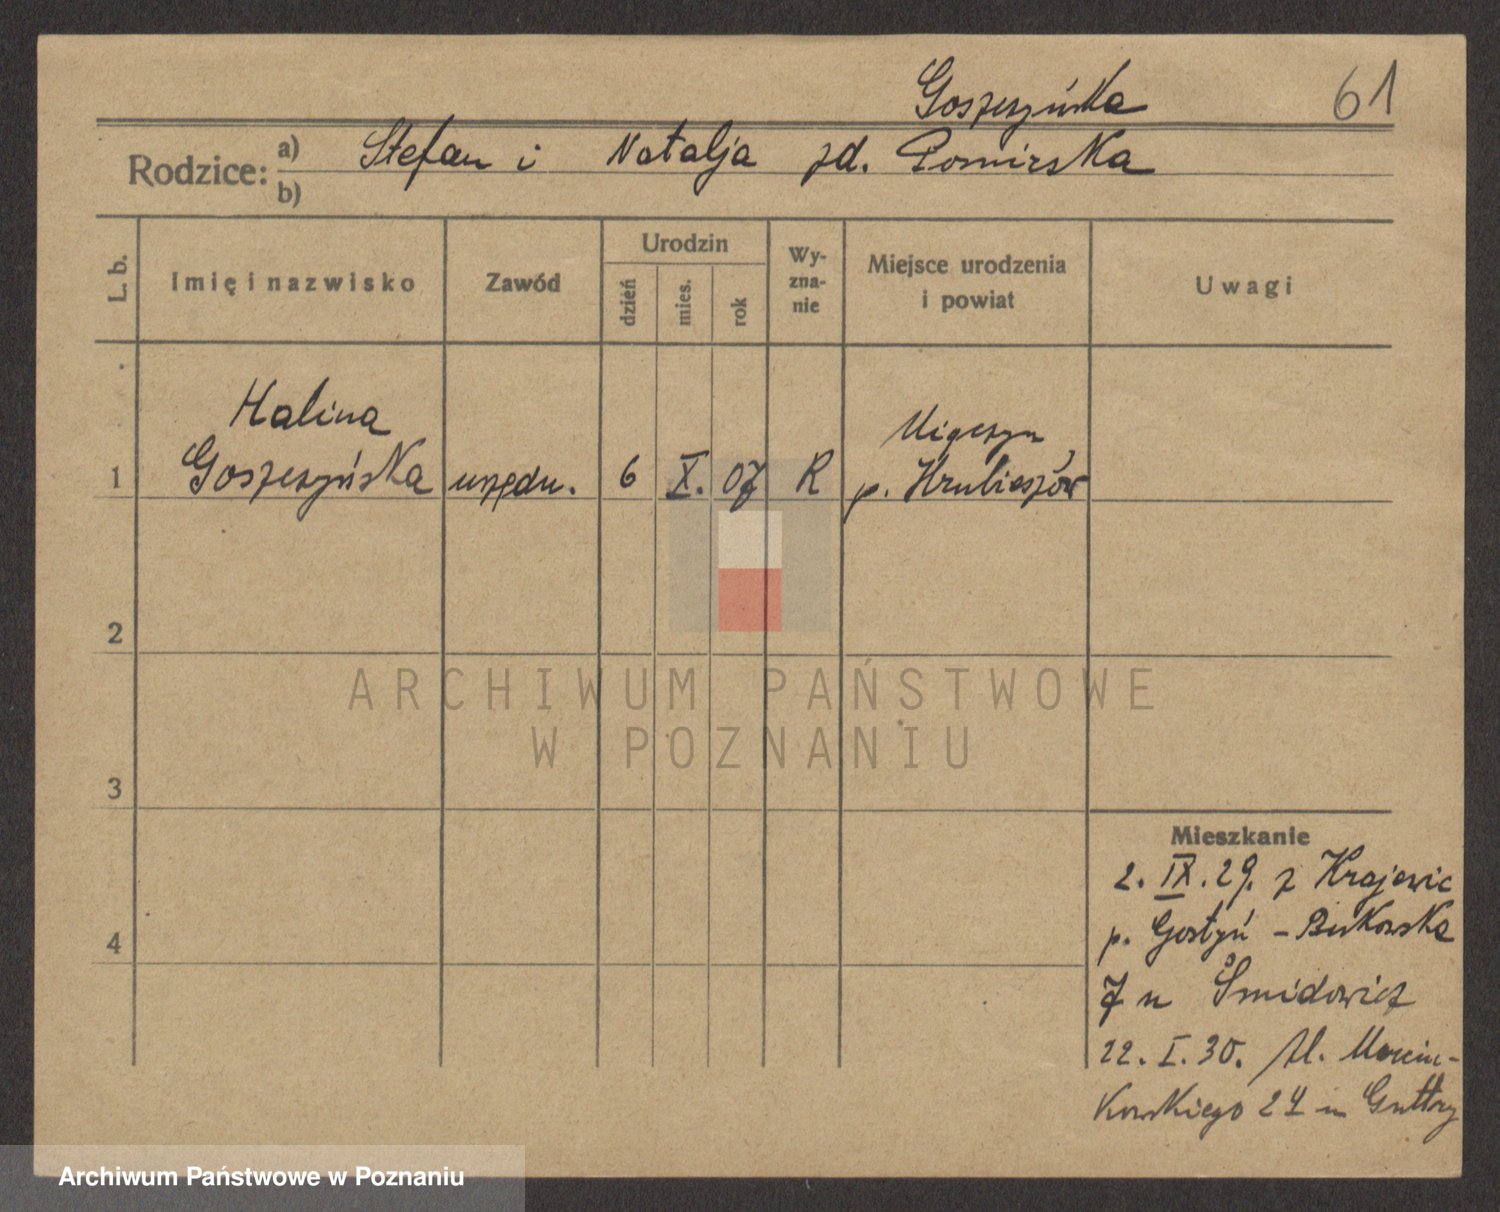 Goszczyńska
61
Rodzice: a) b) Stefan i Natalja zd. Pomirska
L. b.
Imię i nazwisko
Zawód
Urodzin
dzień
mies.
rok
Wy-
zna-
nie
Miejsce urodzenia
i powiat
Uwagi
Halina
1 Goszczyńska urzędn. 6 X. 07 R
p. Hrubieszów
2
ARCHIWUM PAŃSTWOWE
W POZNANIU
3
Mieszkanie
2. IX. 29. z Krajewic
4
p. Gostyń - Bukowska
7 u Śmidowicz
22. I. 30. Al. Marcin-
kowskiego 24 u
Archiwum Państwowe w Poznaniu